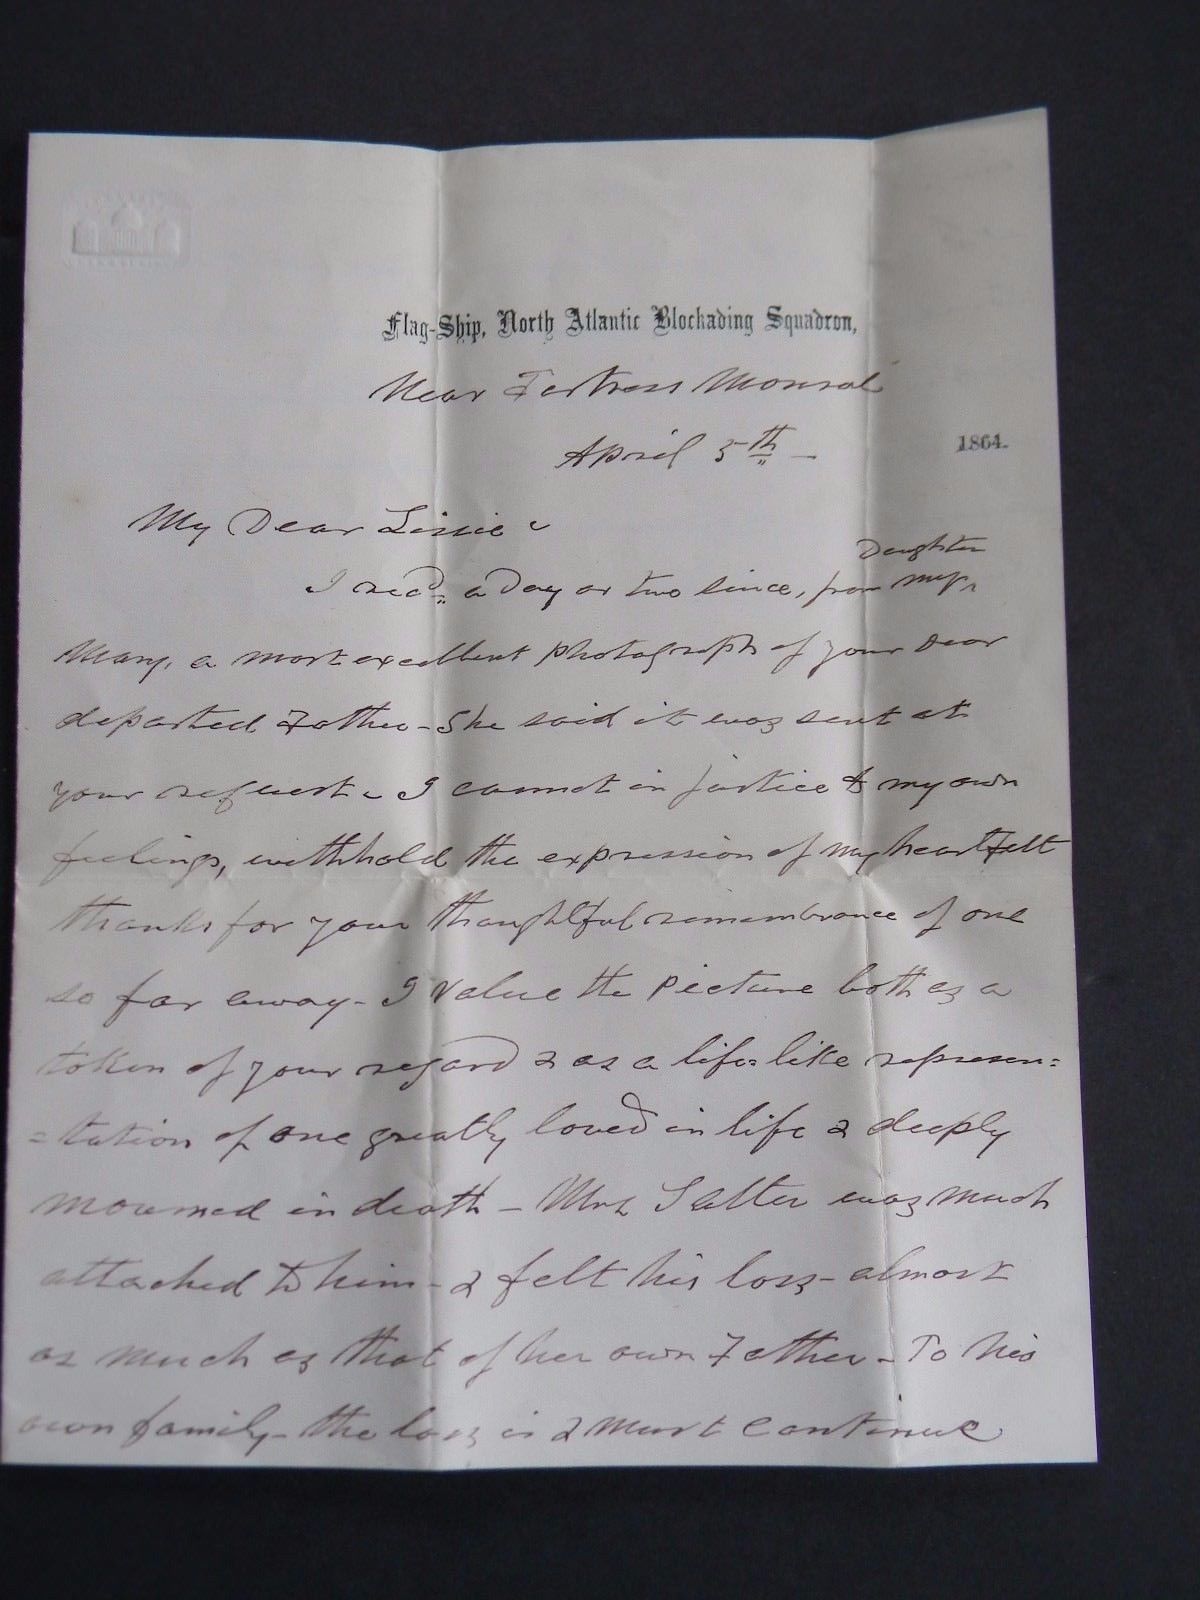 Flag-Ship, North Atlantic Blockading Squadron,
Near Fortress Monroe
April 5th - 1864.
My Dear Lissie
Daughter
I recd. a Day or two since, from my
Mary, a most excellent photograph of your Dear
departed Father - She said it was sent at
your request - I cannot in justice to my own
feelings, withhold the expression of my heartfelt
thanks for your thoughtful remembrance of one
so far away - I value the picture both as a
token of your regard & as a life-like represen=
=tation of one greatly loved in life & deeply
mourned in death - Mrs. Salter was much
attached to him - & felt his loss - almost
as much as that of her own Father - To his
own family - the loss is & must continue